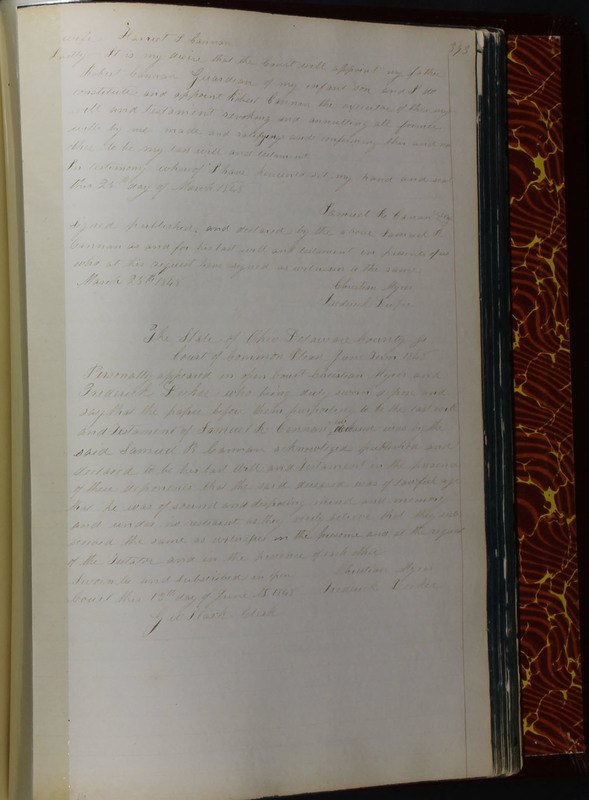 393
wife Harriet L Cannan
Lastly It is my desire that the Court will appoint my father
Robert Cannan Guardian of my infant son and I do
constitute and appoint Robert Cannan the executor of this my
will and testament revoking and annulling all former
wills by me made and ratifying and confirming this and no
other to be my last will and testament
In testimony whereof I have hereunto set my hand and seal
this 25th day of March 1848
Samuel R Cannan
Signed published and declared by the above Samuel R
Cannan as and for his last will and testament in presence of us
who at his request have signed as witnesses to the same
March 25th 1848 Christian Myer
Frederick
The State of Ohio Delaware County ss
Court of Common Pleas June Term 1848
Personally appeared in open Court Christian Myer and
Frederick who being duly sworn depose and
say that the paper before them purporting to be the last will
and testament of Samuel R Cannan deceased was by the
said Samuel R Cannan acknowledged published and
declared to be his last Will and Testament in the presence
of these deponents that the said deceased was of lawful age
that he was of sound and disposing mind and memory
and under no restraint as they verily believe that they sub
scribed the same as witnesses in the presence and at the request
of the Testator and in the presence of each other
Sworn to and subscribed in open Christian Myer
Court this 12th day of June AD 1848 Frederick
Clerk